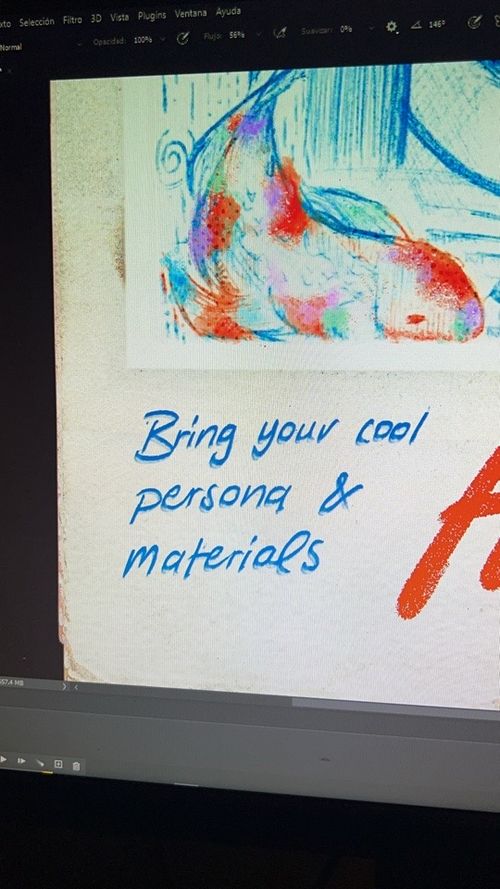 xto Selección Filtro 3D Vista Plugins Ventana Ayuda
Normal Opacidad: 100% Flujo: 56% Suavizar: 0% 146°
Bring your cool
persona &
materials
557.4 MB